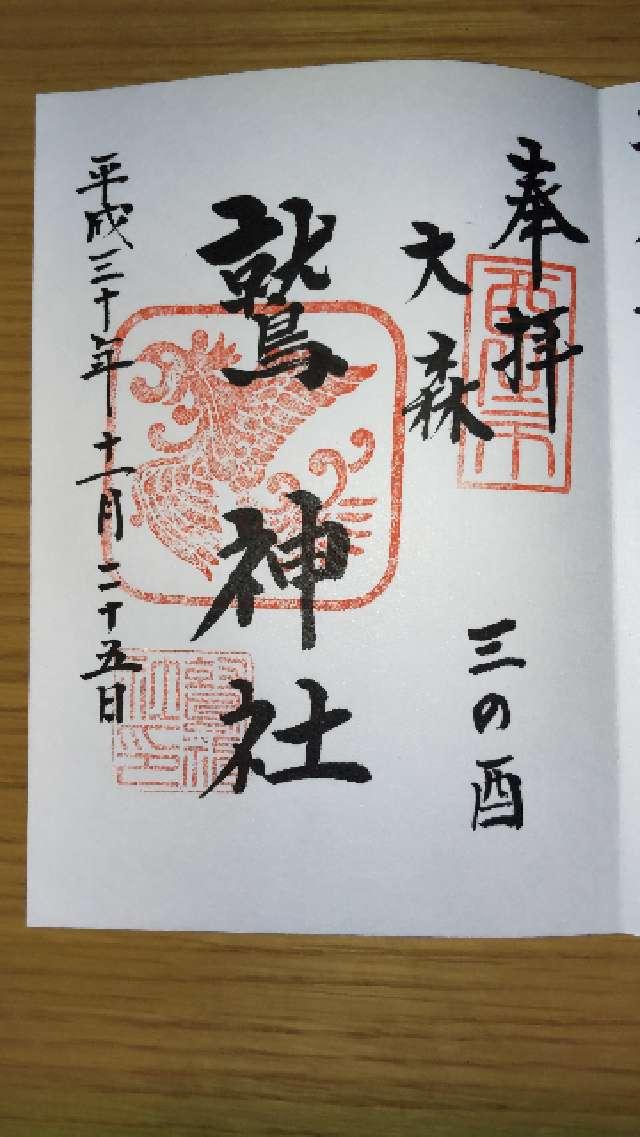 奉拝
三の酉
大森
鷲神社
平成三十年十一月二十五日